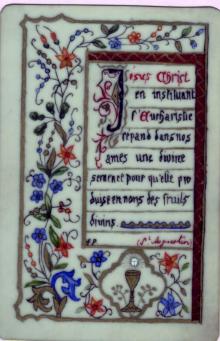 Jésus Christ
en instituant
l'Eucharistie
répand dans nos
âmes une divine
semence pour qu'elle pro
duise en nous des fruits
divins.
(St Augustin)